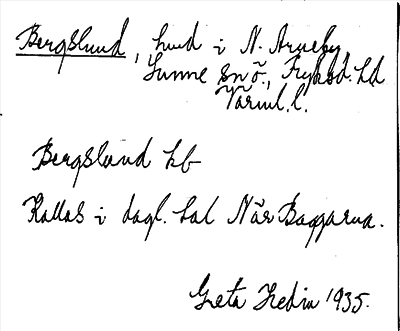 Bergslund, hmd i N. Årneby,
Sunne snö., Fryksd. hd
Värml. l.
Bergslund kb
Kallas i dagl. tal När Baggarna.
Greta Hedin 1935.